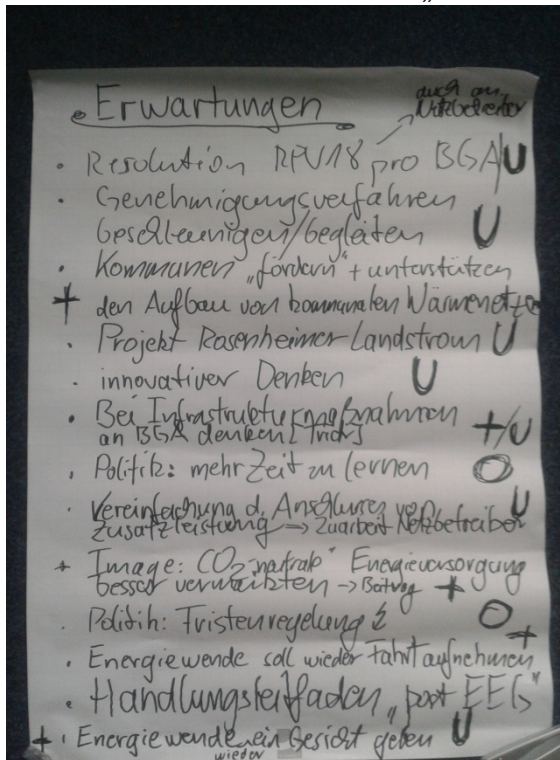 • Erwartungen
auch an
Netzbetreiber
• Resolution RFV18 pro BGA U
• Genehmigungsverfahren
beschleunigen/begleiten U
• Kommunen „fördern" + unterstützen
+ den Aufbau von kommunalen Wärmenetzen
• Projekt Rosenheimer Landstrom U
• innovativer Denken U
• Bei Infrastrukturmaßnahmen +/U
an BGA denken
• Politik: mehr Zeit zu lernen O
• Vereinfachung d. Anschlusses von U
Zusatzleistung → Zuarbeit Netzbetreiber
+ Image: CO2-neutral" Energieversorgung
besser vermarkten → Beitrag +
• Politik: Fristenregelung O
• Energiewende soll wieder Fahrt aufnehmen +
• Handlungsleitfaden „post EEG"
+ • Energiewende ein Gesicht geben U
wieder